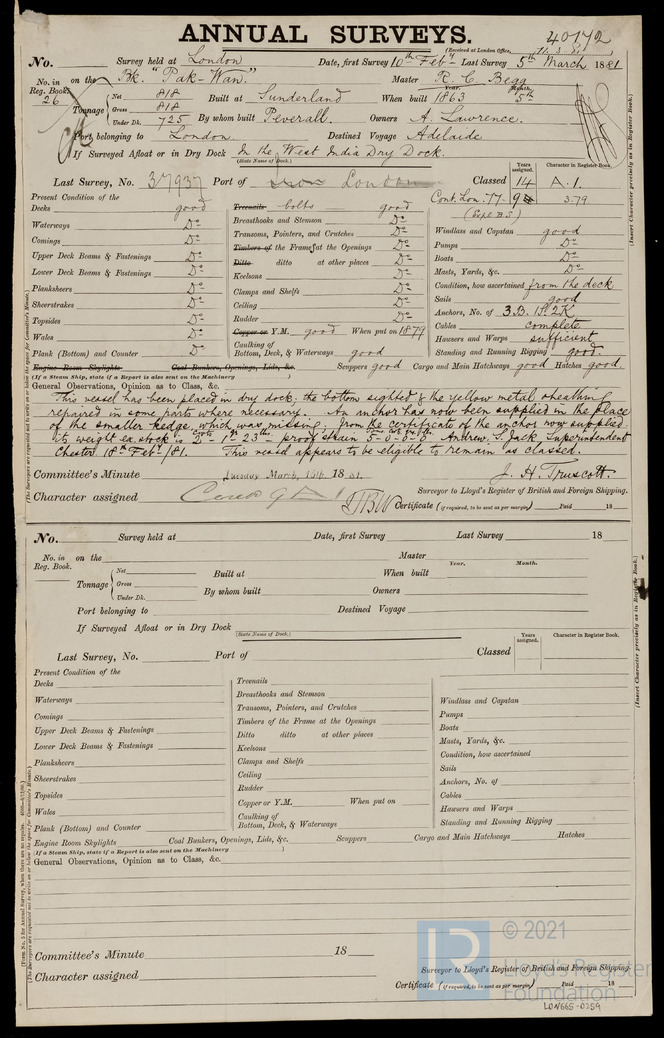 ANNUAL SURVEYS.
40172
(Received at London Office,
No. Survey held at London Date, first Survey 10th Feby Last Survey 5th March 1881
No. in Reg. Book. 26 on the Bk. "Pak-Wan." Master R. C. Begg
Tonnage Net 818 Gross 818 Under Dk. 725
Built at Sunderland When built 1863 Year. Month. 5th
By whom built Peverall. Owners A. Lawrence.
Port belonging to London Destined Voyage Adelaide
If Surveyed Afloat or in Dry Dock In the West India Dry Dock.
(State Name of Dock.)
Years assigned. Character in Register Book.
Last Survey, No. 37937 Port of London Classed 14 A.1.
Cont. Lon. 77-9 3.79
Present Condition of the
Decks good
Waterways Do
Comings Do
Upper Deck Beams & Fastenings Do
Lower Deck Beams & Fastenings Do
Planksheers Do
Sheerstrakes Do
Topsides Do
Wales Do
Plank (Bottom) and Counter Do
Treenails bolts good
Breasthooks and Stemson Do
Transoms, Pointers, and Crutches Do
Timbers of the Frame at the Openings Do
Ditto ditto at other places Do
Keelsons Do
Clamps and Shelfs Do
Ceiling Do
Rudder Do
Copper or Y.M. good When put on 1879
Caulking of
Bottom, Deck, & Waterways good
Windlass and Capstan good
Pumps Do
Boats Do
Masts, Yards, &c. Do
Condition, how ascertained from the deck
Sails good
Anchors, No. of 3.B. 1S. 2K
Cables complete
Hawsers and Warps sufficient
Standing and Running Rigging good.
Engine Room Skylights Coal Bunkers, Openings, Lids, &c. Scuppers good Cargo and Main Hatchways good Hatches good.
(If a Steam Ship, state if a Report is also sent on the Machinery )
General Observations, Opinion as to Class, &c.
This vessel has been placed in dry dock, the bottom sighted & the yellow metal sheathing
repaired in some parts where necessary. An anchor has now been supplied in the place
of the smaller kedge, which was missing. From the certificate of the anchor now supplied
its weight ex. stock = 2 cwts 1 qr 23 lbs - proof strain 5-0-0-0 Andrew. S. Jack Superintendent
Chester 18th Feby /81. This vessel appears to be eligible to remain as classed.
J. H. Truscott.
Committee's Minute Tuesday March, 15th 1881.
Surveyor to Lloyd's Register of British and Foreign Shipping.
Character assigned
Certificate (if required, to be sent as per margin) Paid 18
(Insert Character precisely as in Register Book.)
No. Survey held at Date, first Survey Last Survey 18
No. in Reg. Book. on the Master
Tonnage Net Gross Under Dk.
Built at When built Year. Month.
By whom built Owners
Port belonging to Destined Voyage
If Surveyed Afloat or in Dry Dock
(State Name of Dock.)
Years assigned. Character in Register Book.
Last Survey, No. Port of Classed
Present Condition of the
Decks
Waterways
Comings
Upper Deck Beams & Fastenings
Lower Deck Beams & Fastenings
Planksheers
Sheerstrakes
Topsides
Wales
Plank (Bottom) and Counter
Treenails
Breasthooks and Stemson
Transoms, Pointers, and Crutches
Timbers of the Frame at the Openings
Ditto ditto at other places
Keelsons
Clamps and Shelfs
Ceiling
Rudder
Copper or Y.M. When put on
Caulking of
Bottom, Deck, & Waterways
Windlass and Capstan
Pumps
Boats
Masts, Yards, &c.
Condition, how ascertained
Sails
Anchors, No. of
Cables
Hawsers and Warps
Standing and Running Rigging
Engine Room Skylights Coal Bunkers, Openings, Lids, &c. Scuppers Cargo and Main Hatchways Hatches
(If a Steam Ship, state if a Report is also sent on the Machinery )
General Observations, Opinion as to Class, &c.
Committee's Minute 18
Surveyor to Lloyd's Register of British and Foreign Shipping.
Character assigned
Certificate (if required, to be sent as per margin) Paid 18
(Insert Character precisely as in Register Book.)
LR © 2021
Lloyd's Register
Foundation
LON665-0259